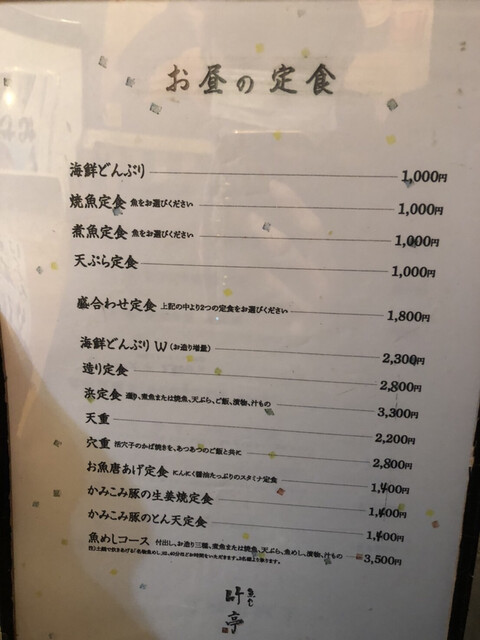 お昼の定食
海鮮どんぶり 1,000円
焼魚定食 魚をお選びください 1,000円
煮魚定食 魚をお選びください 1,000円
天ぷら定食 1,000円
盛合わせ定食 上記の中より2つの定食をお選びください 1,800円
海鮮どんぶりW(お造り増量) 2,300円
造り定食 2,800円
浜定食 造り、煮魚または焼魚、天ぷら、ご飯、漬物、汁もの 3,300円
天重 2,200円
穴重 活穴子のかば焼きを、あつあつのご飯と共に 2,800円
お魚唐あげ定食 にんにく醤油たっぷりのスタミナ定食 1,400円
かみこみ豚の生姜焼定食 1,400円
かみこみ豚のとん天定食 1,400円
魚めしコース 付出し、お造り三種、煮魚または焼魚、天ぷら、魚めし、漬物、汁もの 3,500円